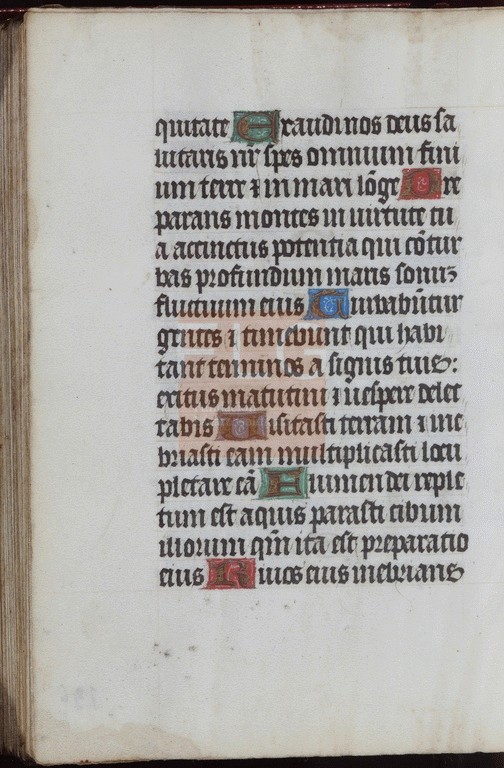 quitate Exaudi nos deus sa
lutaris nr̄ spes omnium fini
um terre ⁊ in mari lōge Pre
parans montes in uirtute tu
a accinctus potentia qui cōtur
bas profundum maris sonuꝫ
fluctuum eius Turbabūtur
gentes ⁊ timebunt qui habi
tant terminos a signis tuis:
exitus matutini ⁊ uespere delec
tabis Uisitasti terram ⁊ ine
briasti eam multiplicasti locu
pletare eā Flumen dei reple
tum est aquis parasti cibum
illorum qm̄ ita est preparatio
eius Riuos eius inebrians